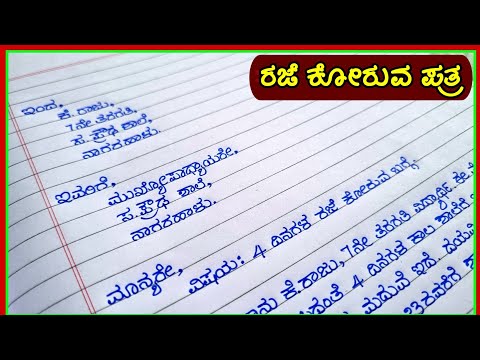 ರಜೆ ಕೋರುವ ಪತ್ರ
ಇಂದ,
ಕೆ. ರಾಜು,
7ನೇ ತರಗತಿ,
ಸ. ಪ್ರೌಢ ಶಾಲೆ,
ನಾಗರಹಾಳು.
ಇವರಿಗೆ,
ಮುಖ್ಯೋಪಾಧ್ಯಾಯರು,
ಸ. ಪ್ರೌಢ ಶಾಲೆ,
ನಾಗರಹಾಳು.
ಮಾನ್ಯರೇ,
ವಿಷಯ: 4 ದಿನಗಳ ರಜೆ ಕೋರುವ ಬಗ್ಗೆ.
ಕೆ. ರಾಜು, 7ನೇ ತರಗತಿ ವಿದ್ಯಾರ್ಥಿ
4 ದಿನಗಳ ಕಾಲ ಶಾಲೆಗೆ
ಮದುವೆ ಇದೆ.